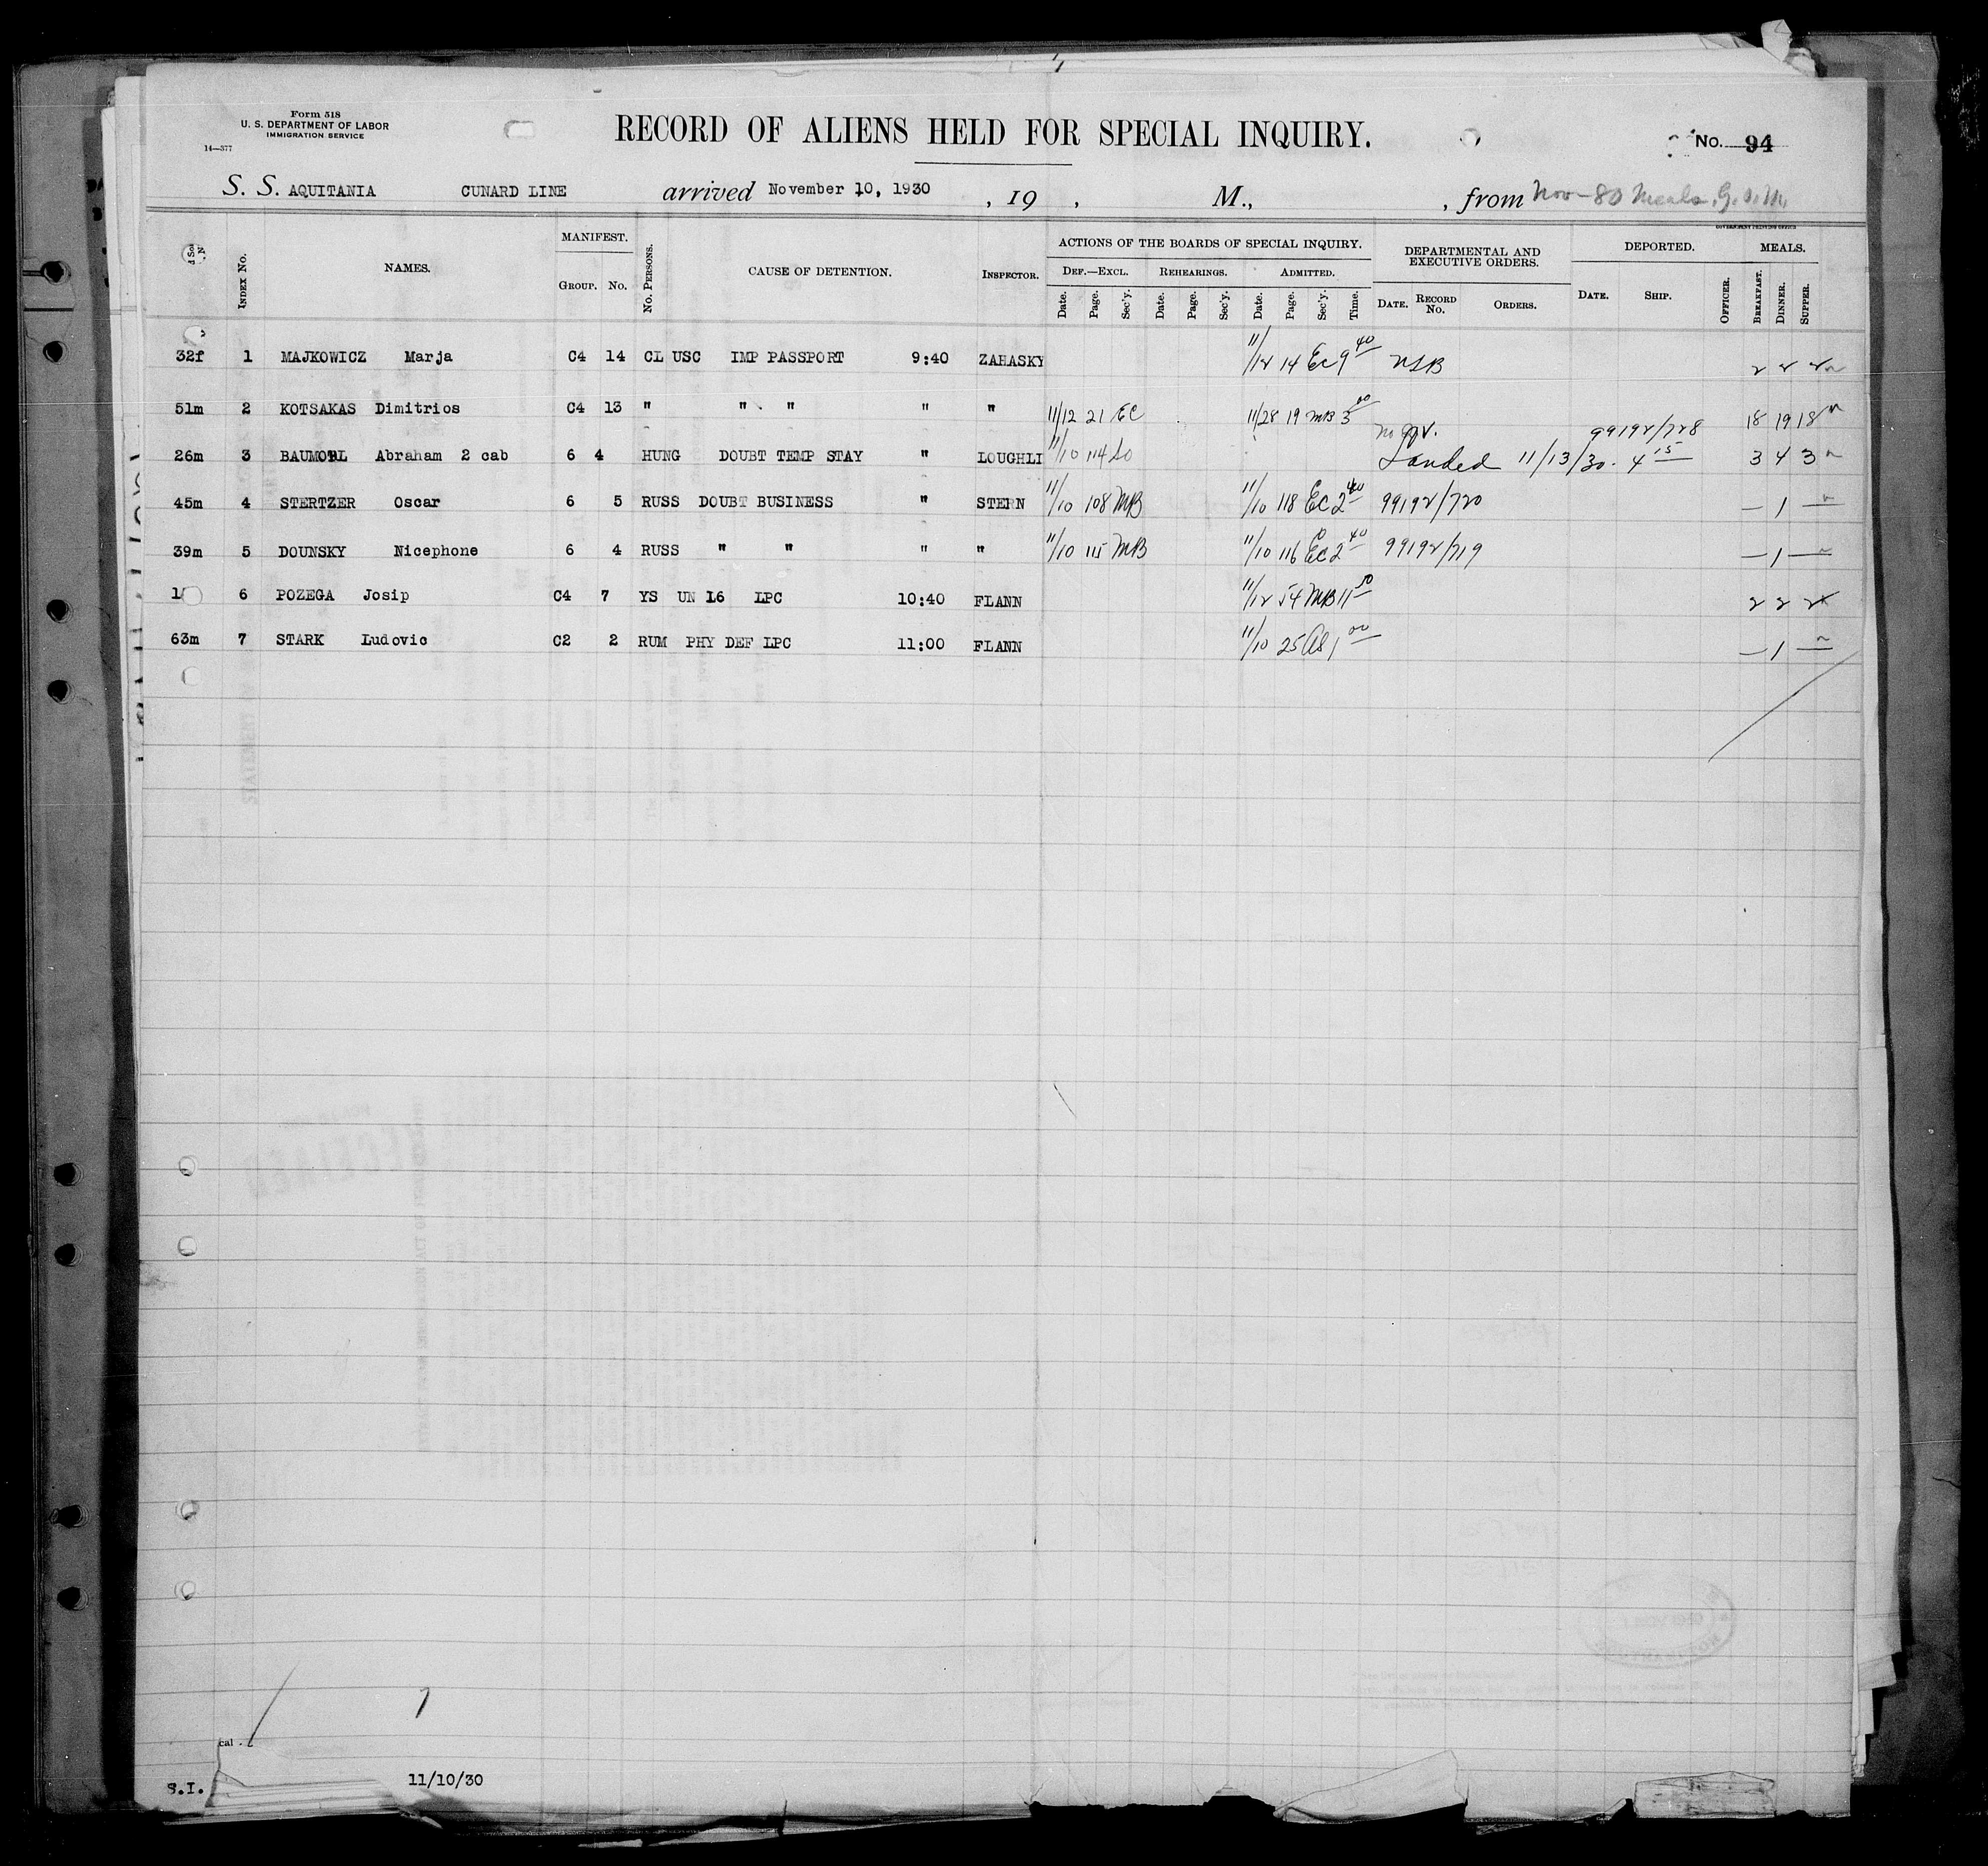 Form 518
U. S. DEPARTMENT OF LABOR
IMMIGRATION SERVICE
14—377
RECORD OF ALIENS HELD FOR SPECIAL INQUIRY.
No. 94
S. S. AQUITANIA CUNARD LINE arrived November 10, 1930 , 19 , M., , from Nov-80 Meals.
GOVERNMENT PRINTING OFFICE
MANIFEST. ACTIONS OF THE BOARDS OF SPECIAL INQUIRY. DEPARTMENTAL AND EXECUTIVE ORDERS. DEPORTED. MEALS.
Index No. NAMES. Group. No. No. Persons. CAUSE OF DETENTION. Inspector. Def.—Excl. Rehearings. Admitted.
Date. Page. Sec'y. Date. Page. Sec'y. Date. Page. Sec'y. Time. Date. Record No. Orders. Date. Ship. Officer. Breakfast. Dinner. Supper.
32f 1 MAJKOWICZ Marja C4 14 CL USC IMP PASSPORT 9:40 ZAHASKY 11/12 14 EC 9 40 NSB 2 2 2
51m 2 KOTSAKAS Dimitrios C4 13 " " " " " 11/12 21 EC 11/28 19 MB 3 00 18 19 18
26m 3 BAUMOHL Abraham 2 cab 6 4 HUNG DOUBT TEMP STAY " LOUGHLI 11/10 114 99192/728 Landed 11/13/30. 4 15 3 4 3
45m 4 STERTZER Oscar 6 5 RUSS DOUBT BUSINESS " STERN 11/10 108 MB 11/10 118 EC 2 40 99192/720 — 1 —
39m 5 DOUNSKY Nicephone 6 4 RUSS " " " " 11/10 115 MB 11/10 116 EC 2 40 99192/719 — 1 —
6 POZEGA Josip C4 7 YS UN 16 LPC 10:40 FLANN 11/12 54 MB 11 50 2 2 2
63m 7 STARK Ludovic C2 2 RUM PHY DEF LPC 11:00 FLANN 11/10 25 AS 1 00 — 1 —
7
cal .
S.I. 11/10/30